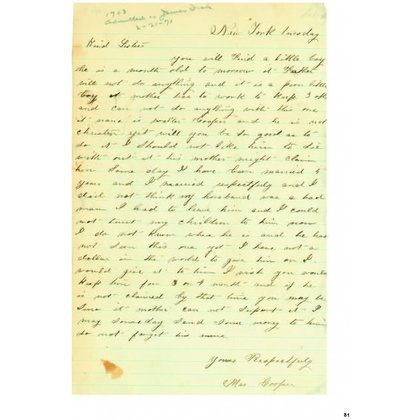 New York Tuesday
Kind Sister
you will find a little boy
he is a month old to morrow it father
will not do anything and it is a poor little
boy it mother has to work to keep 3 others
and can not do anything with this one
it name is Walter Cooper and he is not
christen yet will you be so good as to
do it I should not like him to die
with out it his mother might claim
him some day I have been married 
years and I married respectfuly and I
did not think my husband was a bad
man I had to leave him and I could
not trust my children to him now
I do not know where he is and he has
not seen this one yet I have not a
dollar in the world to give him or I
would give it to him I wish you would
keep him for 3 or 4 month and if he
is not claimed by that time you may be
sure it mother can not suport it I
may someday send some money to him
do not forget his name
Yours Respectfuly
Mrs Cooper
51